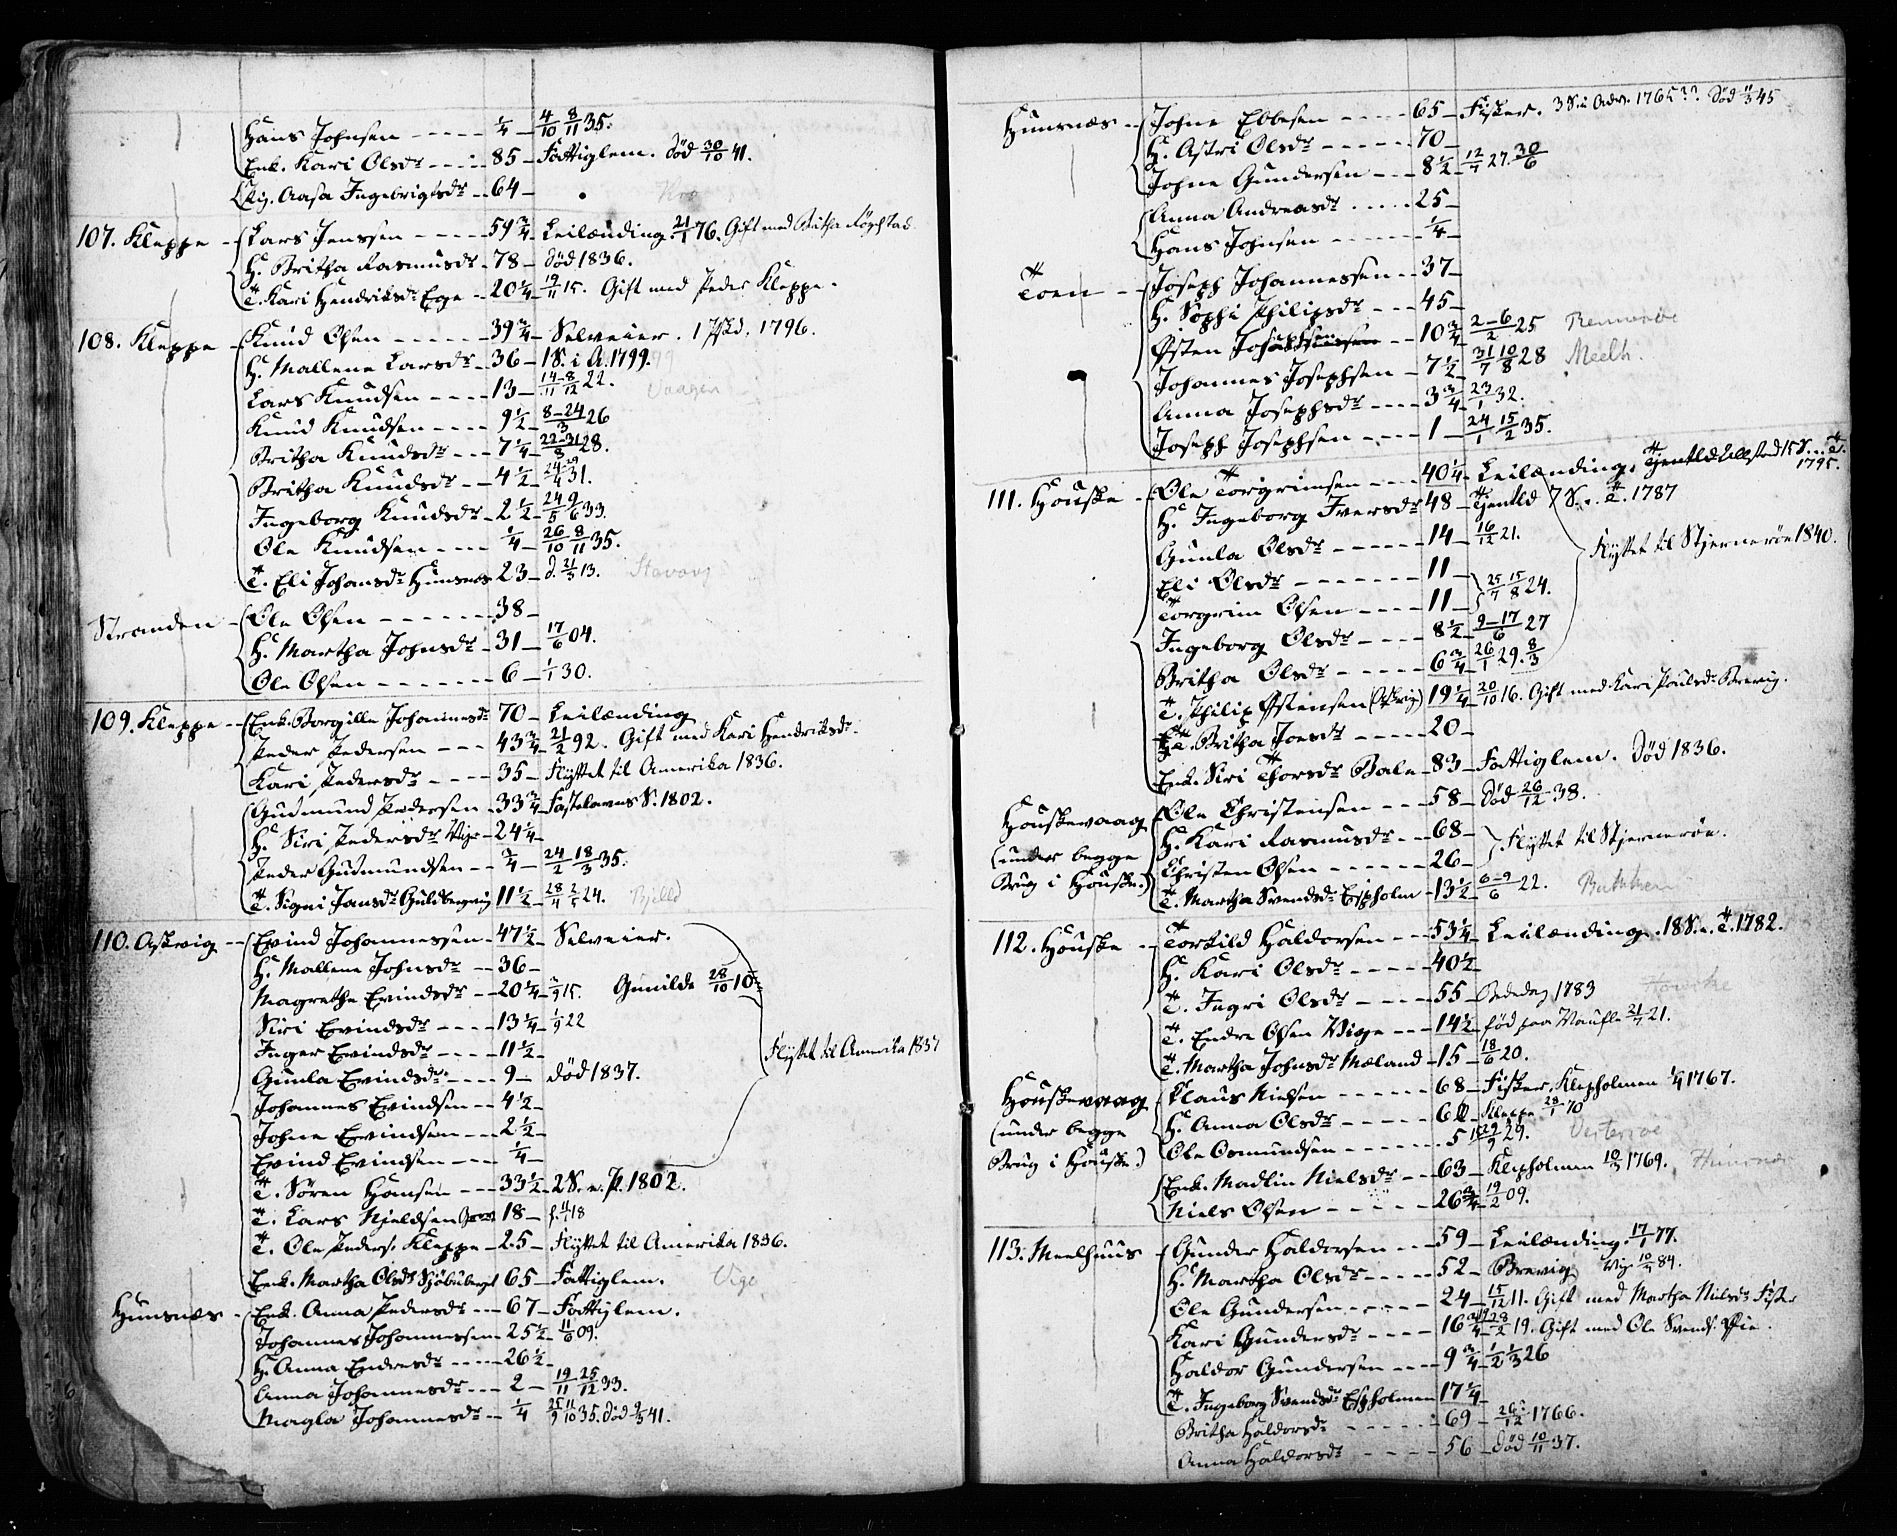 Hans Johnsen - - - - - 1/4 - 4/10 8/11 35.
Enk. Kari Olsdr - - - 85 - Fattiglem. Død 30/10 41.
Pig. Aasa Ingebrigtsdr - 64 -
107. Kleppe - Lars Jenssen - - - - 59 3/4 Leilænding 21/1 76. Gift med Britha
H. Britha Rasmusdr - 78 - død 1836.
T. Kari Hendriksdr Ege - 20 1/4 19/11 15. Gift med Peder Kleppe.
108. Kleppe - Knud Olsen - - - - - 39 3/4 Selveier. 1 1796.
H. Mallene Larsdr - 36 - 1 S. i A. 1799.
Lars Knudsen - - - - 13 - 14/11 - 8/12 22. Vaagen
Knud Knudsen - - - - 9 1/2 8-24/3 26
Britha Knudsdr - - - 7 1/4 22-31/8 28.
Britha Knudsdr - - 4 1/2 24/4 31.
Ingeborg Knudsdr - 2 1/2 24/5 9/6 33.
Ole Knudsen - - - - 1/4 26/10 8/11 35.
T. Eli Johansdr Hunsnæs 23 - d. 21/3 13. Stavang
Stranden - Ole Olsen - - - - - - 38 -
H. Martha Johnsdr - 31 - 17/6 04.
Ole Olsen - - - - - - - 6 - 1/1 30.
109. Kleppe - Enk. Borgille Johannesdr 70 - Leilænding
Peder Pedersen - - - 43 3/4 21/2 92. Gift med Kari Hendriksdr.
Kari Pedersdr - - - - 35 - Flyttet til Amerika 1836.
Gudmund Pedersen - 33 3/4 Fastelavns S. 1802.
H. Siri Pedersdr Vige - 24 1/4
Peder Gudmundsen - - 3/4 - 24/2 18/3 35.
T. Signi Jansdr Guldbergvig 11 1/2 28/4 2/5 24. Bjelld
110. Askvig - Evind Johannessen - 47 1/2 - Selveier.
H. Mallene Johnsdr - - 36 -
Magrethe Evindsdr - - 20 1/4 3/9 15. Gunilde 28/10 10
Siri Evindsdr - - - - 13 1/4 1/9 22
Inger Evindsdr - - - - 11 1/2
Gunla Evindsdr - - - - 9 - død 1837.
Flyttet til Amerika 1837
Johannes Evindsen - - 4 1/2
Johne Evindsen - - - 2 1/2
Evind Evindsen - - - 1/4
T. Sören Hansen - - - 33 1/2 - 2 S. e. P. 1802.
T. Lars Kjeldsen 18 - f. 11/1 18
T. Ole Peders. Kleppe - 25 - Flyttet til Amerika 1836.
Enk. Martha Olsdr Sjöbuberget 65 - Fattiglem. Vige
Hunsnæs - Enk. Anna Pedersdr - - - 67 - Fattiglem.
Johannes Johannessen - 25 1/2 11/6 09.
H. Anna Endresdr - - - - 26 1/2
Anna Johannesdr - - - 2 - 19/11 25/12 33.
Magla Johannesdr - - 1/4 25/9 11/10 35. død 9/3 41.
Hunsnæs - - Johne Ebbesen - - - - 65 - Fisker. 3 S. i Adv. 1765?? Død 11/3 45
H. Astri Olsdr - - - - - - 70 -
Johne Gundersen - - - 8 1/2 12/4 27. 30/6
Anna Andreasdr - - - - - 25 -
Hans Johnsen - - - - - - - 1/4
Toen - - Joseph Johannessen - - 37 -
H. Sophi Philipsdr - - - 45 -
Østen Josephsen - - 10 3/4 2-6/2 25 Rennesøe
Johannes Josephsen - 7 1/2 31/7 10/8 28 Meelh.
Anna Josephsdr - - - - 3 3/4 23/1 32.
Joseph Josephsen - - - - 1 - 24/1 15/2 35.
111. Houske - Ole Torgrimsen - - - 40 1/4 - Leilænding. 15 S. e. T. 1795.
H. Ingeborg Iversdr 48 - 7 S. e. T. 1787
Gunla Olsdr - - - - - - 14 - 16/12 21.
Flyttet til Stjernerøe 1840.
Eli Olsdr - - - - - - - 11 -
Torgrim Olsen - - - - 11 - 25/7 15/8 24.
Ingeborg Olsdr - - - - 8 1/2 9-17/6 27
Britha Olsdr - - - - - 6 3/4 26/1 29. 8/3
T. Philip Østensen (Askvig) 19 1/4 20/10 16. Gift med Kari Paulsdr Brevig.
T. Britha Joesdr - - - 20 -
Enk. Siri Thorsdr Bale - 83 - Fattiglem. Død 1836.
Houskevaag (under begge Brug i Houske.) Ole Christensen - - - 58 - Død 26/12 38.
H. Kari Rasmusdr - - 68 -
Christen Olsen - - - - - 26 - Flyttet til Stjernerøe.
T. Martha Svendsdr Espholm - 13 1/2 6-9/6 22.
112. Houske - Torkild Haldorsen - - - 53 1/4 - Leilænding. 18 S. e. T. 1782.
H. Kari Olsdr - - - - - 40 1/2
T. Ingri Olsdr - - - - - 55 - Bededag 1783 Howske
T. Endre Olsen Vige - - - 14 1/2 - fød paa 21/7 21.
T. Martha Johnsdr Mæland - 15 - 18/6 20.
Houskevaag (under begge Brug i Houske.) Klaus Nielsen - - - - - 68 - Fisker. Klepholmen 1/4 1767.
H. Anna Olsdr - - - - - 6 Kleppe 28/1 70
Ole Osmundsen - - - - - 5 29/9 29. Vesterøe
Enk. Madlin Nielsdr - - 63 - Klepholmen 10/3 1769. Hunsnæs
Niels Olsen - - - - - 26 3/4 19/2 09.
113. Meelhuus - Gunder Haldorsen - - - 59 - Leilænding. 17/1 77.
H. Martha Olsdr - - - - - 52 - Brevig Vig. 10/4 84.
Ole Gundersen - - - - - 24 - 15/12 11. Gift med Martha Nielsdr Fister
Kari Gundersdr - - - - 16 3/4 28/2 19. Gift med Ole Svends.
Haldor Gundersen - - - - 9 3/4 1/2 1/3 26
T. Ingeborg Svendsdr Espholmen 17 1/4
Britha Haldorsdr - - - - 69 - 26/12 1766.
Anna Haldorsdr - - - - - 56 - død 10/11 37.